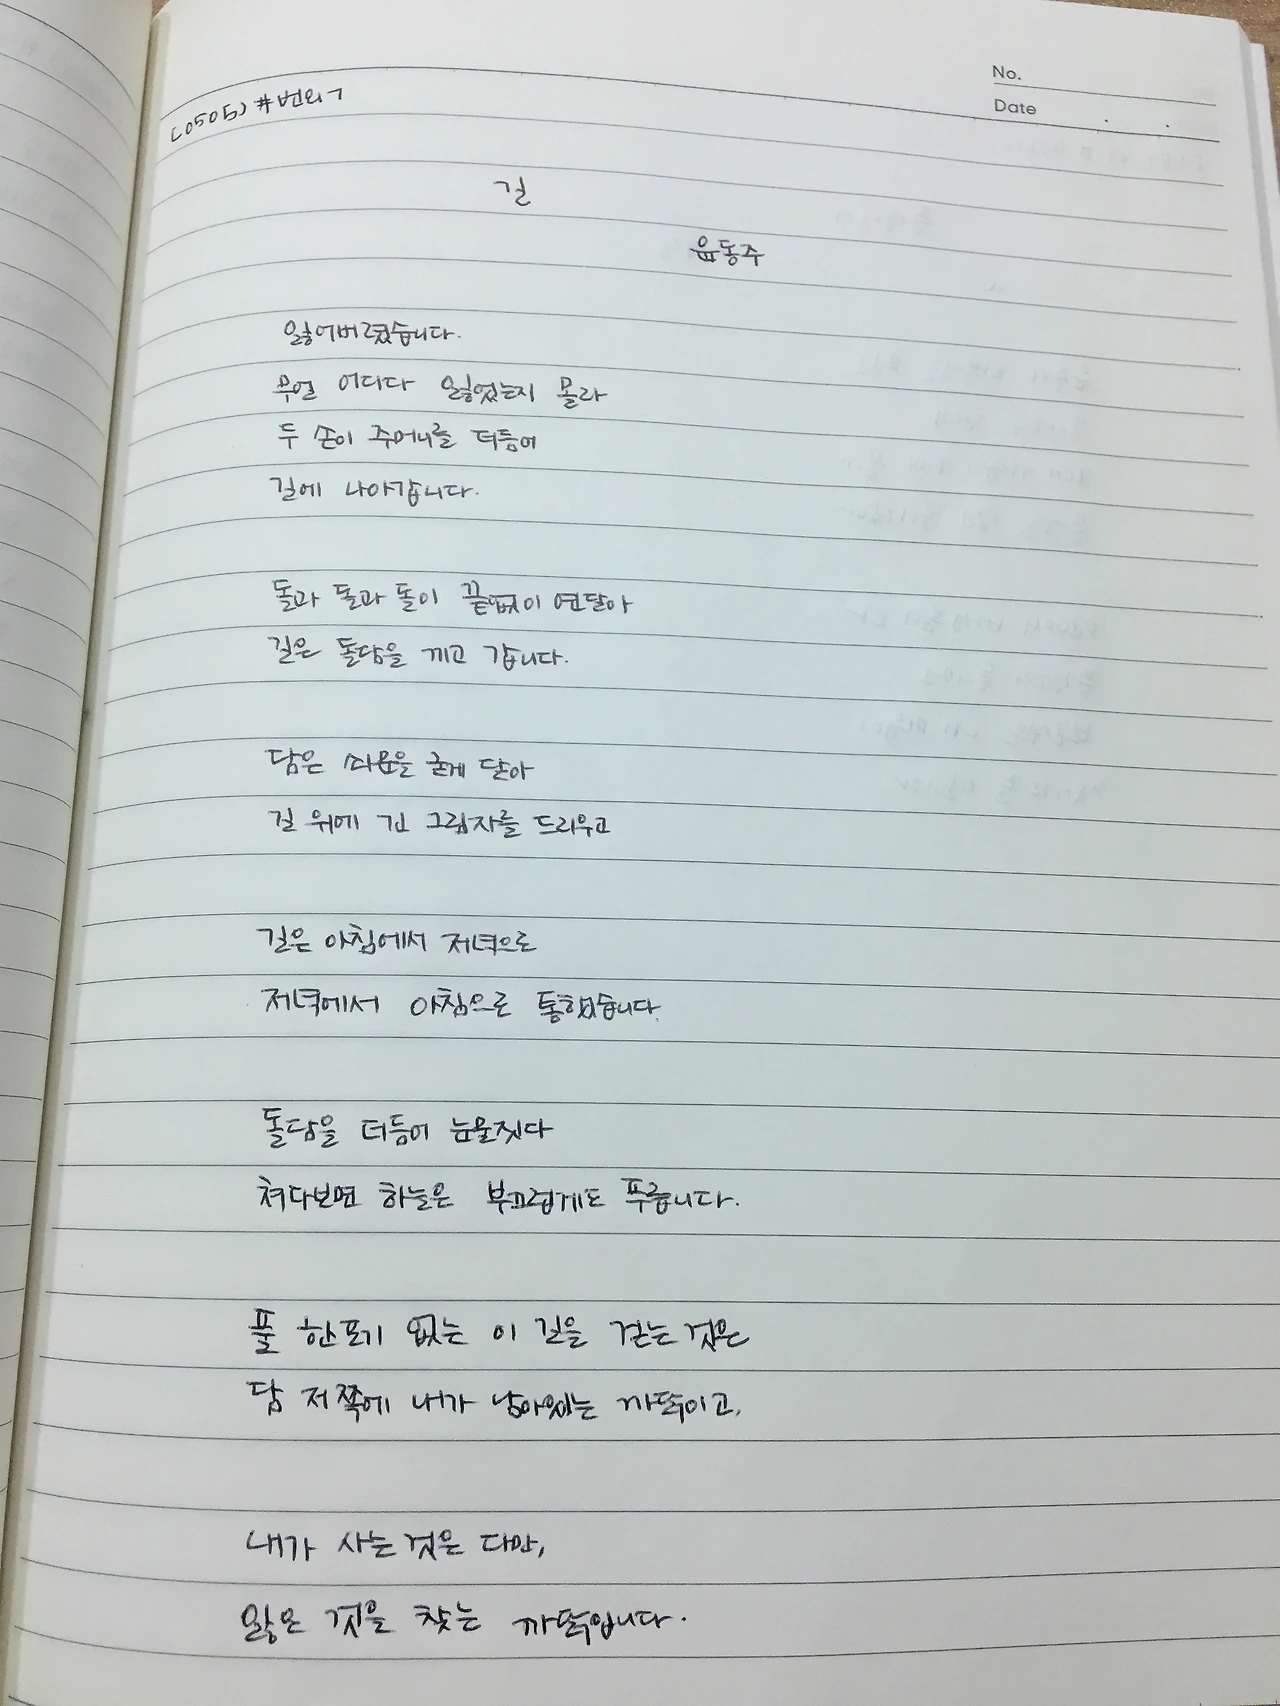 No.
Date . .
(0505) #번외7
길
윤동주
잃어버렸습니다.
무얼 어디다 잃었는지 몰라
두 손이 주머니를 더듬어
길에 나아갑니다.
돌과 돌과 돌이 끝없이 연달아
길은 돌담을 끼고 갑니다.
담은 쇠문을 굳게 닫아
길 위에 긴 그림자를 드리우고
길은 아침에서 저녁으로
저녁에서 아침으로 통했습니다.
돌담을 더듬어 눈물짓다
쳐다보면 하늘은 부끄럽게도 푸릅니다.
풀 한포기 없는 이 길을 걷는 것은
담 저쪽에 내가 남아있는 까닭이고,
내가 사는 것은 다만,
잃은 것을 찾는 까닭입니다.